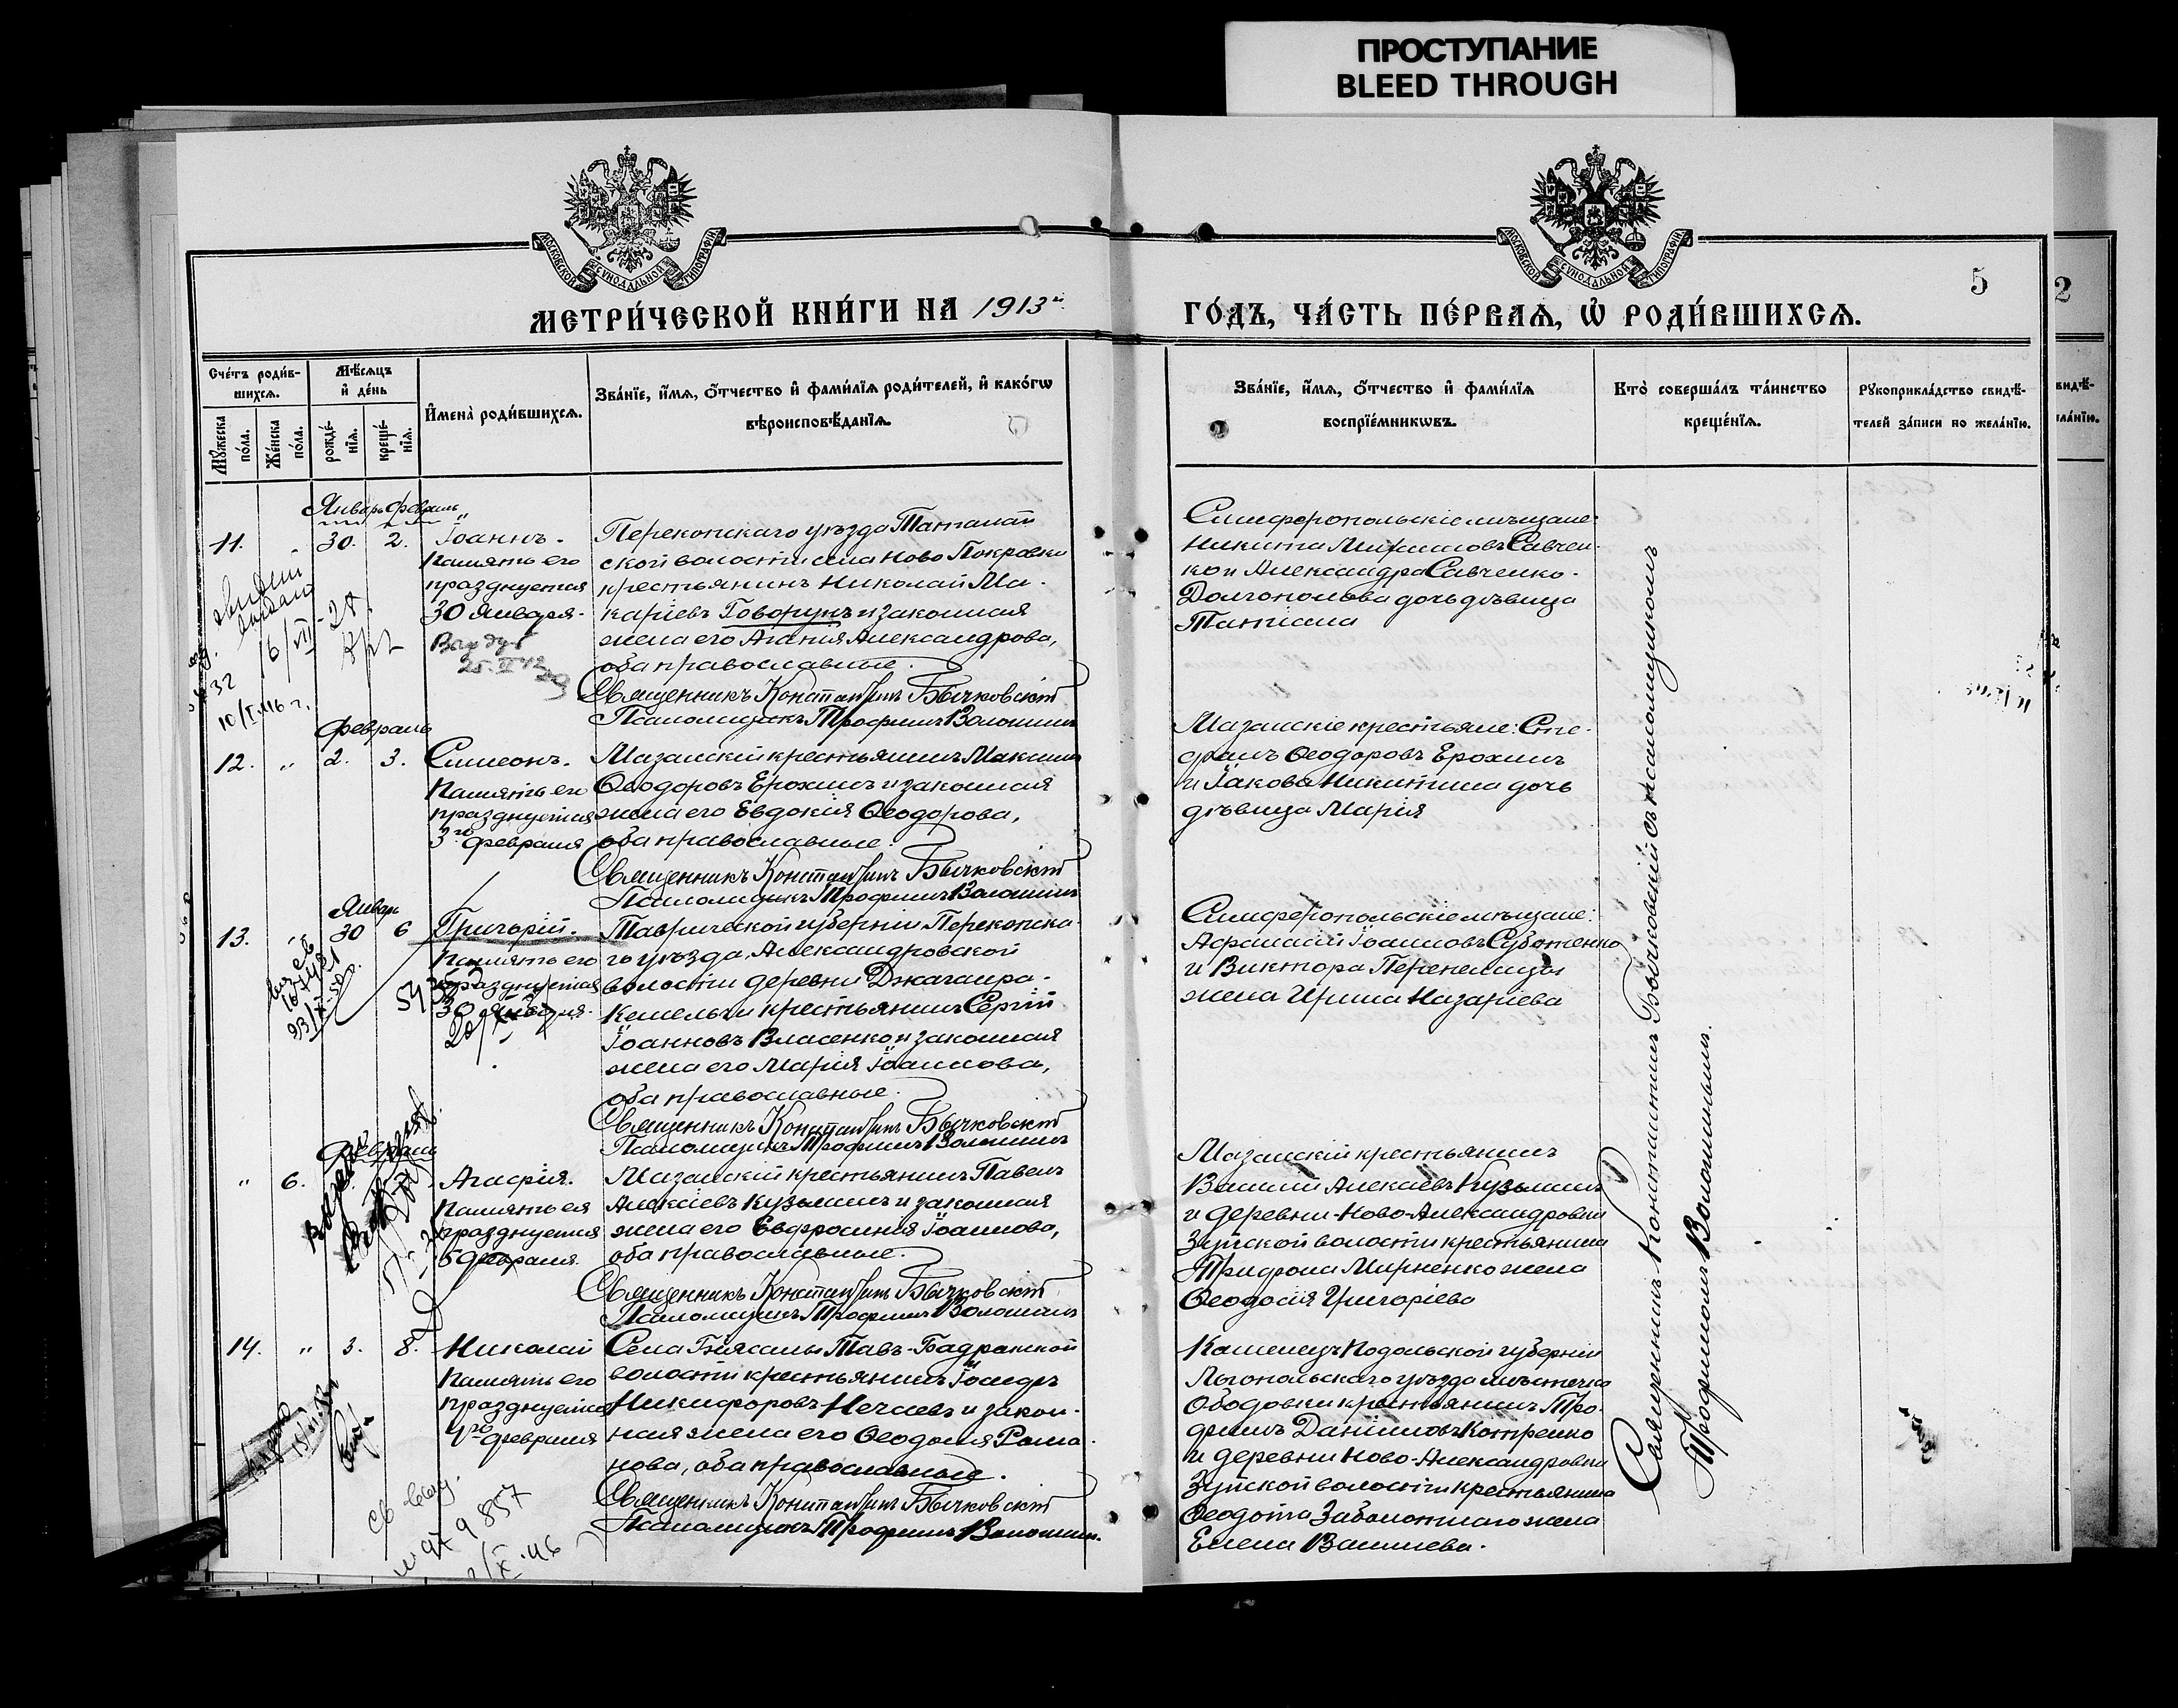 ПРОСТУПАНИЕ
BLEED THROUGH
МОСКОВСКОЙ СѴНОДАЛЬНОЙ ТИПОГРАФІИ
МОСКОВСКОЙ СѴНОДАЛЬНОЙ ТИПОГРАФІИ
5
2
МЕТРИ́ЧЕСКОЙ КНИ́ГИ НА 1913й
ГО́ДЪ, ЧА́СТЬ ПЕ́РВАѦ, Ѡ҆ РОДИ́ВШИХСѦ.
Сче́тъ роди́в-
шихсѧ.
Мꙋ́жеска по́ла.
Же́нска по́ла.
Мѣ́сѧцъ
и҆ де́нь
рожде́-
нїѧ.
креще́-
нїѧ.
И҆мена̀ роди́вшихсѧ.
Зва́нїе, и҆́мѧ, о҆́тчество и҆ фами́лїѧ роди́телей, и҆ како́гѡ
вѣроисповѣ́данїѧ.
Зва́нїе, и҆́мѧ, о҆́тчество и҆ фами́лїѧ
воспрїе́мникѡвъ.
Кто̀ соверша́лъ та́инство
креще́нїѧ.
Рꙋкоприкла́дство свидѣ́-
телей за́писи по жела́нїю.
Январь Февраль
11. " 30. 2. Іоаннъ.
Память его
празднуется
30 Января.
Перекопскаго уѣзда Татанай
ской волости села Ново Покровки
крестьянинъ Николай Ма-
каріевъ Говорунъ и законная
жена его Агаѳія Александрова,
оба православные.
Священникъ Константинъ Бычковскій
Псаломщикъ Трофимъ Волошинъ
Симферопольскіе мѣщане:
Никита Савчен-
ко и Александра Савченко-
Долгополова дочь дѣвица
Татіана
16/VII
32
Февраль
12. " 2. 3. Симеонъ.
Память его
празднуется
3го Февраля
Мазанскій крестьянинъ Максимъ
Ѳеодоровъ Ерохинъ и законная
жена его Евдокія Ѳеодорова,
оба православные.
Священникъ Константинъ Бычковскій
Псаломщикъ Трофимъ Волошинъ
Мазанскіе крестьяне: Сте-
фанъ Ѳеодоровъ Ерохинъ
и Іакова Никитина дочь
дѣвица Марія
Январь
13. " 30 6 Григорій.
Память его
празднуется
30 Января.
Таврической губерніи Перекопска-
го уѣзда, Александровской
волости деревни Джачаира-
Кемельчи крестьянинъ Сергій
Іоанновъ Власенко и законная
жена его Марія Іоаннова,
оба православные.
Священникъ Константинъ Бычковскій
Псаломщикъ Трофимъ Волошинъ
Симферопольскіе мѣщане:
Аѳанасій Іоанновъ Суботенко
и Виктора Перепелицы
жена Ирина Назаріева
Февраль
" 6. Агаѳія.
Память ея
празднуется
5 Февраля.
Мазанскій крестьянинъ Павелъ
Алексіевъ Кузьминъ и законная
жена его Евфросинія Іоаннова,
оба православные.
Священникъ Константинъ Бычковскій
Псаломщикъ Трофимъ Волошинъ
Мазанскій крестьянинъ
Василій Алексіевъ Кузьминъ
и деревни Ново-Александровки
Зуйской волости крестьянина
Трифона Мирненко жена
Ѳеодосія Григоріева
14. " 3. 8. Николай
Память его
празднуется
4го Февраля
Села Біясалы Тавъ-Бадракской
волости крестьянинъ Іосифъ
Никифоровъ Нечаевъ и закон-
ная жена его Ѳеодосія Рома-
нова, оба православные.
Священникъ Константинъ Бычковскій
Псаломщикъ Трофимъ Волошинъ.
Каменецъ Подольской губерніи
уѣзда мѣстечка
Ободовки крестьянинъ Тро-
фимъ Даніиловъ
и деревни Ново-Александровки
Зуйской волости крестьянина
Ѳеодота Заболотнаго жена
Елена Василіева.
Священникъ Константинъ Бычковскій съ псаломщикомъ
Трофимомъ Волошинымъ.